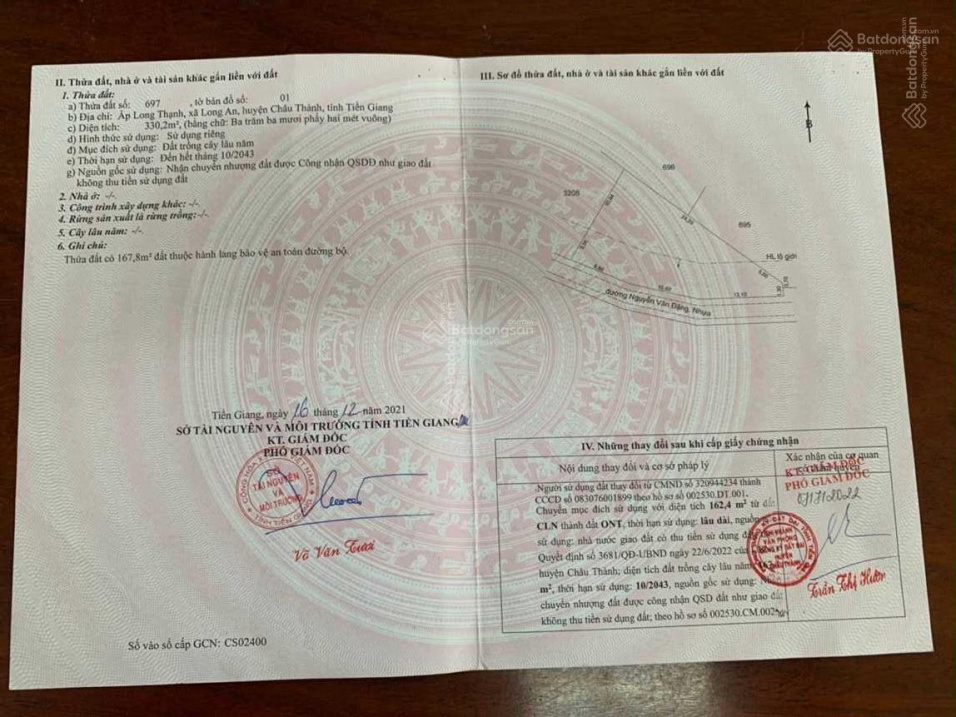 II. Thửa đất, nhà ở và tài sản khác gắn liền với đất
1. Thửa đất:
a) Thửa đất số: 697 , tờ bản đồ số: 01
b) Địa chỉ: Ấp Long Thạnh, xã Long An, huyện Châu Thành, tỉnh Tiền Giang
c) Diện tích: 330,2m², (bằng chữ: Ba trăm ba mươi phẩy hai mét vuông)
d) Hình thức sử dụng: Sử dụng riêng
đ) Mục đích sử dụng: Đất trồng cây lâu năm
e) Thời hạn sử dụng: Đến hết tháng 10/2043
g) Nguồn gốc sử dụng: Nhận chuyển nhượng đất được Công nhận QSDĐ như giao đất
không thu tiền sử dụng đất
2. Nhà ở: -/-.
3. Công trình xây dựng khác: -/-
4. Rừng sản xuất là rừng trồng:-/-.
5. Cây lâu năm: -/-
6. Ghi chú:
Thửa đất có 167,8m² đất thuộc hành lang bảo vệ an toàn đường bộ.
Tiền Giang, ngày 16 tháng 12 năm 2021
SỞ TÀI NGUYÊN VÀ MÔI TRƯỜNG TỈNH TIỀN GIANG
KT. GIÁM ĐỐC
PHÓ GIÁM ĐỐC
SỞ
TÀI NGUYÊN
VÀ
MÔI TRƯỜNG
TỈNH TIỀN GIANG
Võ Văn Tươi
Số vào sổ cấp GCN: CS02400
III. Sơ đồ thửa đất, nhà ở và tài sản khác gắn liền với đất
B
696
3208
695
HL lộ giới
đường Nguyễn Văn Đặng, Nhựa
IV. Những thay đổi sau khi cấp giấy chứng nhận
Nội dung thay đổi và cơ sở pháp lý
Xác nhận của cơ quan
Người sử dụng đất thay đổi từ CMND số 320944234 thành
CCCD số 083076001899 theo hồ sơ số 002530.DT.001.
Chuyển mục đích sử dụng với diện tích 162,4 m² từ đất
CLN thành đất ONT, thời hạn sử dụng: lâu dài, nguồn
sử dụng: nhà nước giao đất có thu tiền sử dụng đất
Quyết định số 3681/QĐ-UBND ngày 22/6/2022 của
huyện Châu Thành; diện tích đất trồng cây lâu năm
m², thời hạn sử dụng: 10/2043, nguồn gốc sử dụng:
chuyển nhượng đất được công nhận QSD đất như giao đất
không thu tiền sử dụng đất; theo hồ sơ số 002530.CM.002
KT. GIÁM ĐỐC
PHÓ GIÁM ĐỐC
Trần Thị Hươn
Batdongsan
by PropertyGuru
Batdongsan
by PropertyGuru
Batdongsan